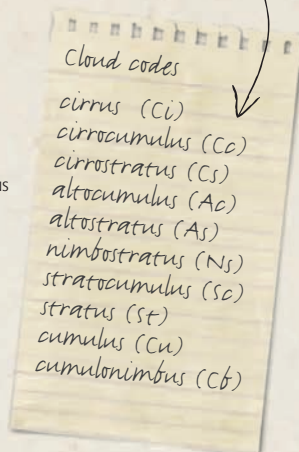 Cloud codes
cirrus (Ci)
cirrocumulus (Cc)
cirrostratus (Cs)
altocumulus (Ac)
altostratus (As)
nimbostratus (Ns)
stratocumulus (Sc)
stratus (St)
cumulus (Cu)
cumulonimbus (Cb)